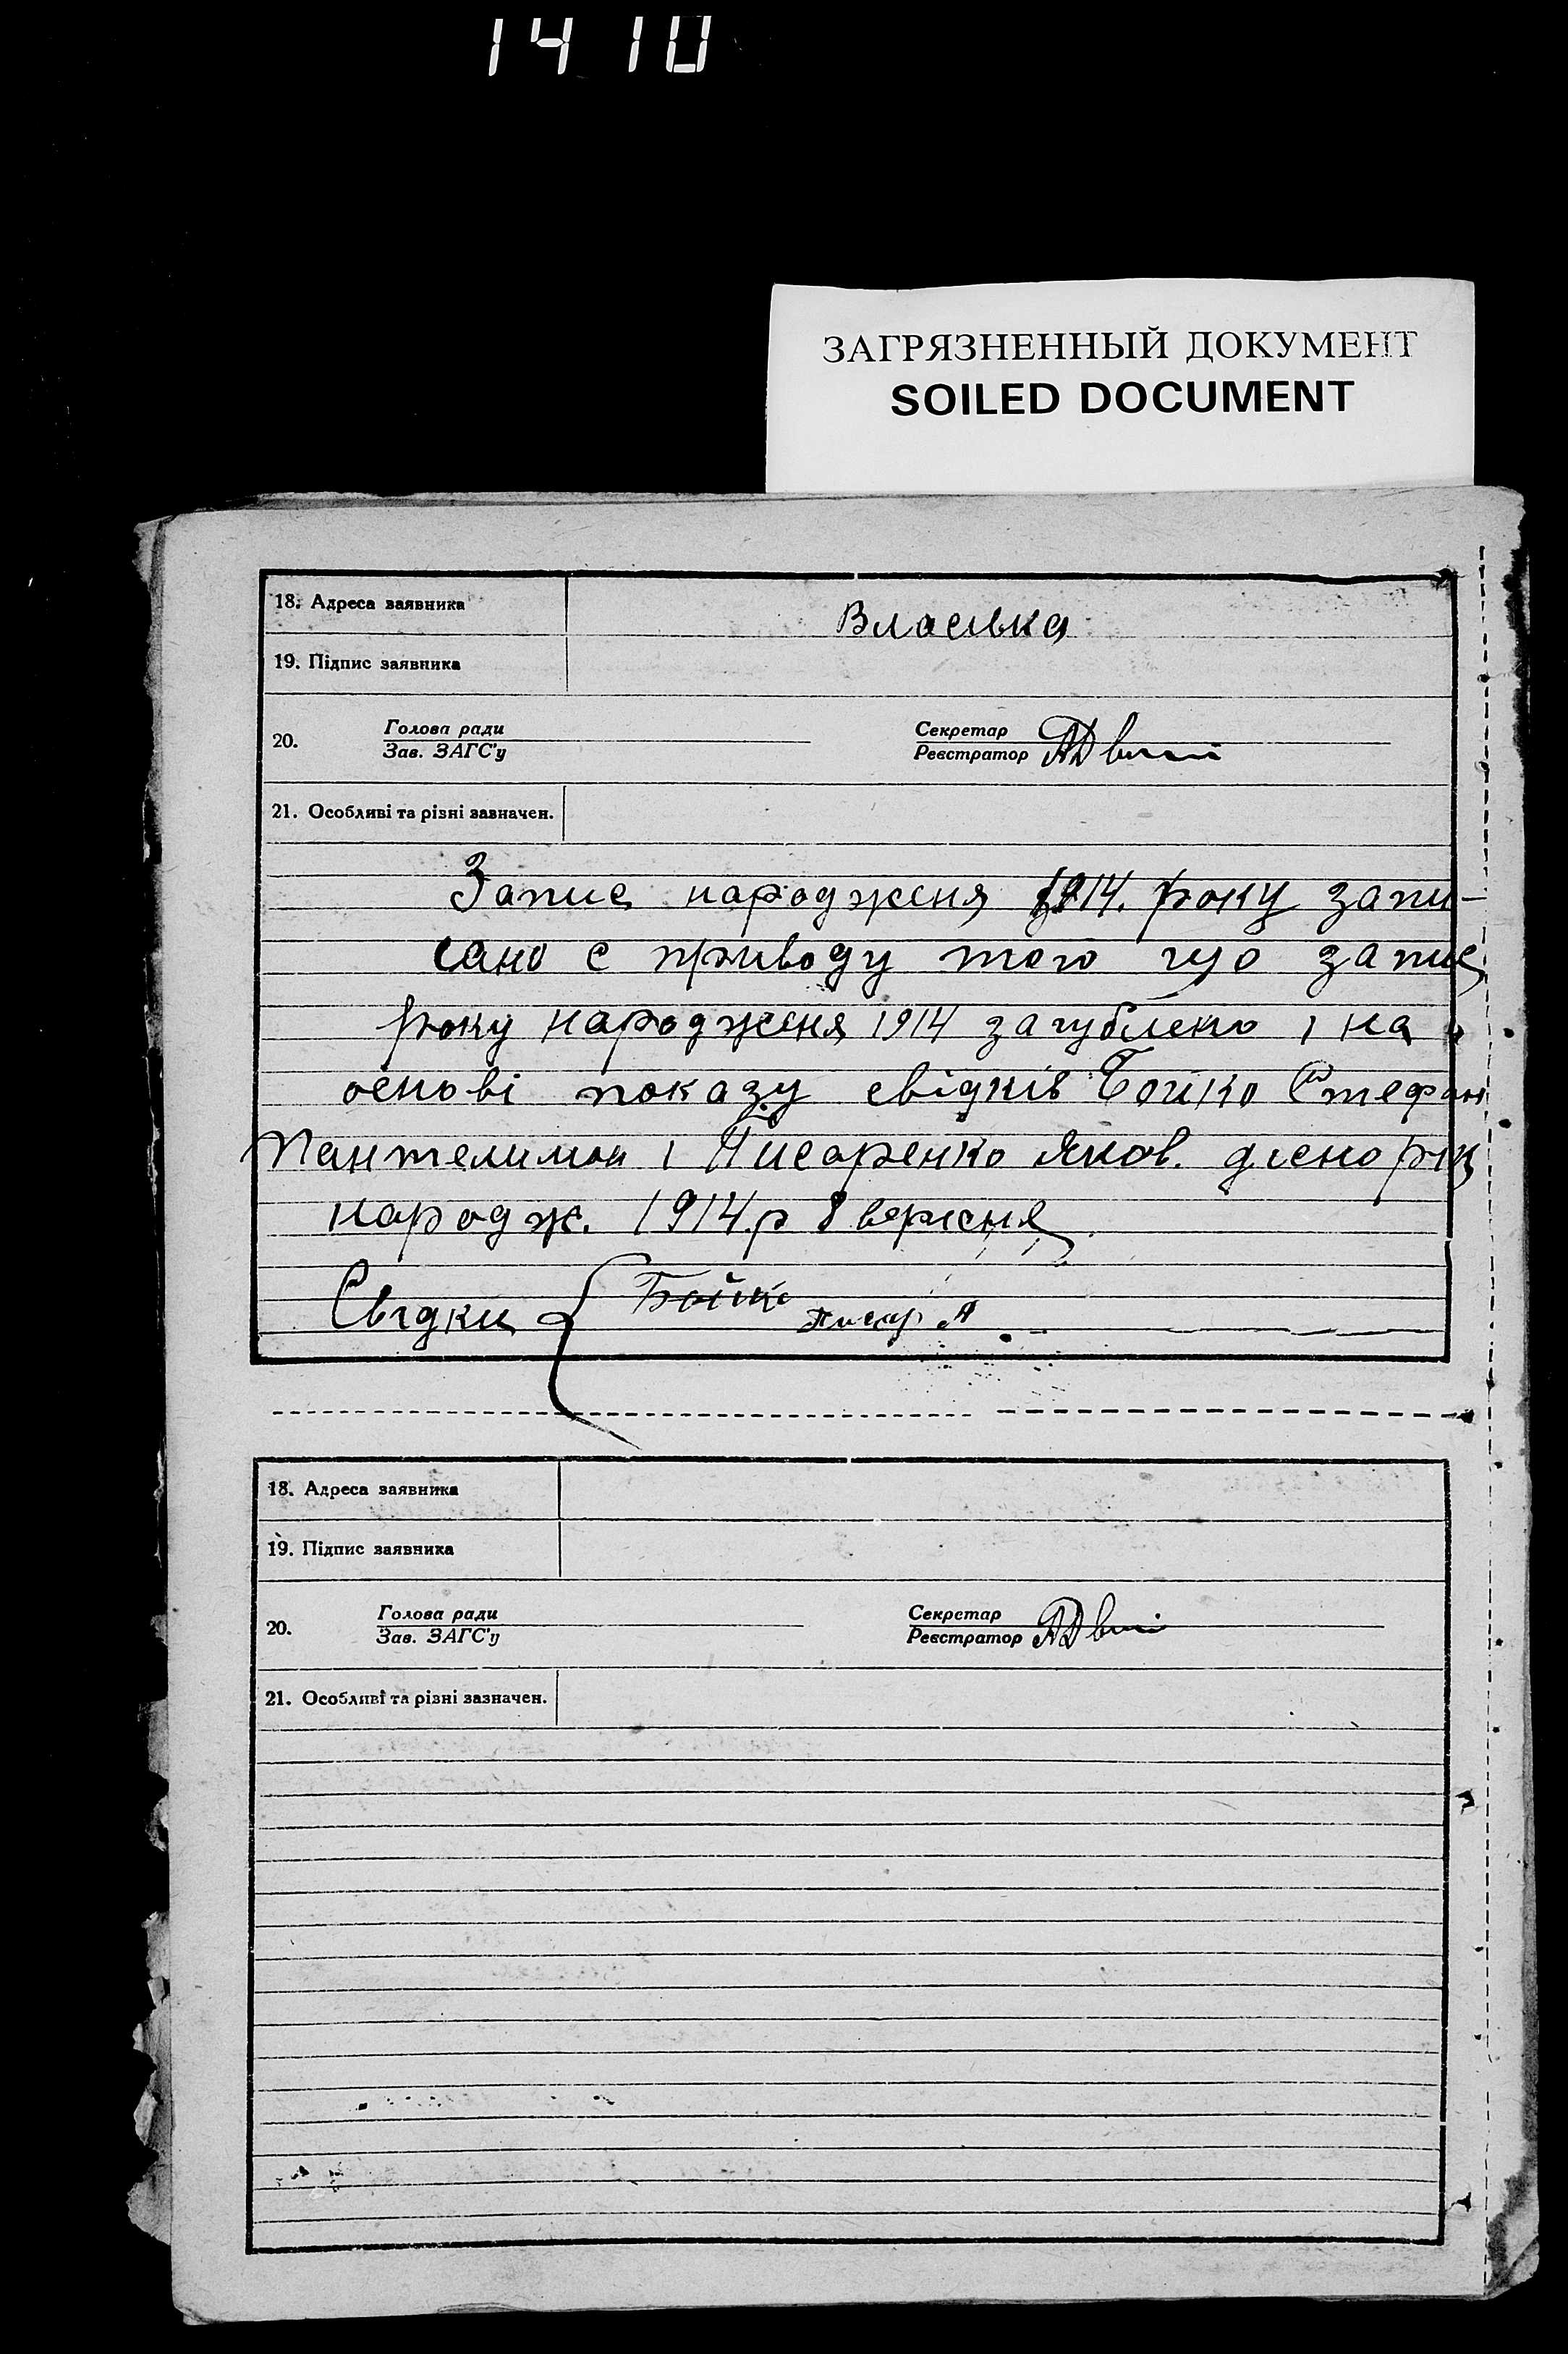 1410
ЗАГРЯЗНЕННЫЙ ДОКУМЕНТ
SOILED DOCUMENT
18. Адреса заявника Власівка
19. Підпис заявника
20. Голова ради Секретар
Зав. ЗАГС'у Реєстратор
21. Особливі та різні зазначен.
Запис народженя 1914. року запи-
сано с приводу того що запис
року народженя 1914 загублено і на
основі показу свідків Бойко Стефан
Пантелимон і Писаренко Яков. дісно рік
народж. 1914.р 8 вересня
Свідки { Бойко Писар. Я
18. Адреса заявника
19. Підпис заявника
20. Голова ради Секретар
Зав. ЗАГС'у Реєстратор
21. Особливі та різні зазначен.